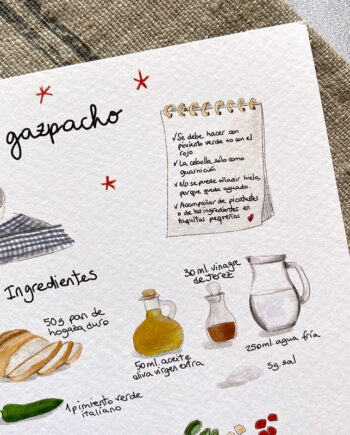 gazpacho
✓ Se debe hacer con
pimiento verde no con el
rojo
✓ La cebolla, sólo como
guarnición
✓ No se puede añadir hielo,
porque queda aguado.
✓ Acompañar de picatostes
o de los ingredientes en
taquitos pequeños
Ingredientes
50g pan de
hogaza duro
30 ml. vinagre
de Jerez
50ml. aceite
oliva virgen extra
250ml agua fría
5g. sal
1 pimiento verde
italiano